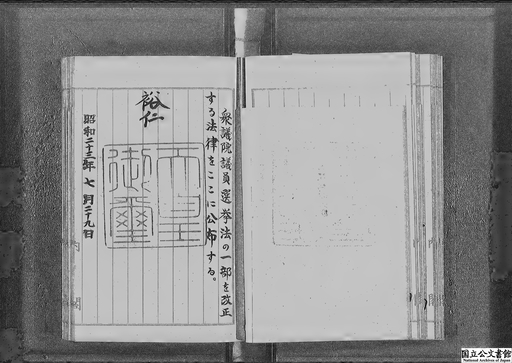 衆議院議員選挙法の一部を改正
する法律をここに公布する。
裕仁
天皇
御璽
昭和二十三年七月二十九日
内閣
国立公文書館
National Archives of Japan